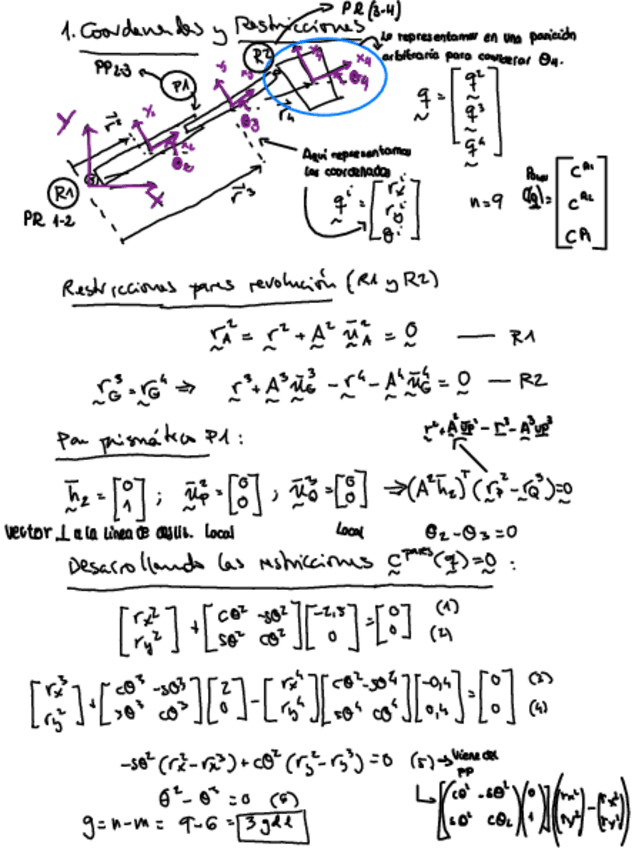 1. Coordenadas y Restricciones
PR(3-4)
R2
Lo representamos en una posición
arbitraria para considerar θ4.
PP2-3
P1
R1
PR 1-2
Y
X
r²
r³
r4
θ2
θ3
θ4
Aquí representamos
las coordenadas
q^i = [r_x^i; r_y^i; θ^i]
q = [q²; q³; q⁴]
n=9
C(q) = [C^R1; C^R2; C^P1]
Restricciones pares revolución (R1 y R2)
r_A² = r² + A² ū_A² = 0 — R1
r_G³ = r_G⁴ ⇒ r³ + A³ū_G³ - r⁴ - A⁴ū_G⁴ = 0 — R2
r² + A²ū_P² - r³ - A³ū_P³
Par prismático P1:
h̄_2 = [0; 1] ; ū_P² = [0; 0] ; ū_Q³ = [0; 0] ⇒ (A²h̄_2)^T (r_P² - r_Q³) = 0
vector ⊥ a la línea de desliz. local
local
θ2-θ3=0
Desarrollando las restricciones C^pares(q)=0 :
[r_x²; r_y²] + [cθ² -sθ²; sθ² cθ²][-2,5; 0] = [0; 0] (1) (2)
[r_x³; r_y²] + [cθ³ -sθ³; sθ³ cθ³][2; 0] - [r_x⁴; r_y⁴][cθ² -sθ⁴; sθ⁴ cθ⁴][-0,4; 0,4] = [0; 0] (3) (4)
-sθ² (r_x² - r_x³) + cθ² (r_y² - r_y³) = 0 (5) → Viene del
PP
θ² - θ³ = 0 (6)
[(cθ² -sθ²; sθ² cθ2)(0; 1)] ((r_x²; r_y²) - (r_x³; r_y³))
g = n-m = 9-6 = 3 gdl